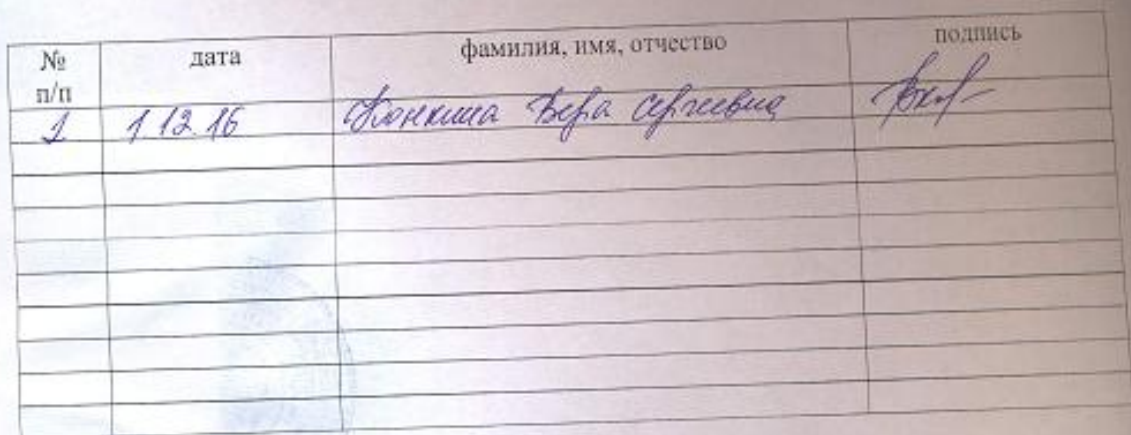 № п/п дата фамилия, имя, отчество подпись
1 1.12.16 Вера Сергеевна